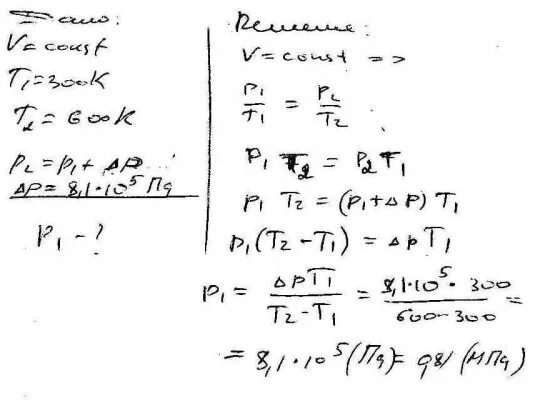 Дано:
V=const
T₁=300K
T₂=600K
p₂=p₁+Δp
Δp=8,1·10⁵ Па
p₁-?
Решение:
V=const =>
p₁/T₁ = p₂/T₂
p₁ T₂ = p₂ T₁
p₁ T₂ = (p₁+Δp) T₁
p₁(T₂-T₁) = Δp T₁
p₁ = ΔpT₁/T₂-T₁ = 8,1·10⁵·300/600-300 =
= 8,1·10⁵(Па)= 0,81 (МПа)